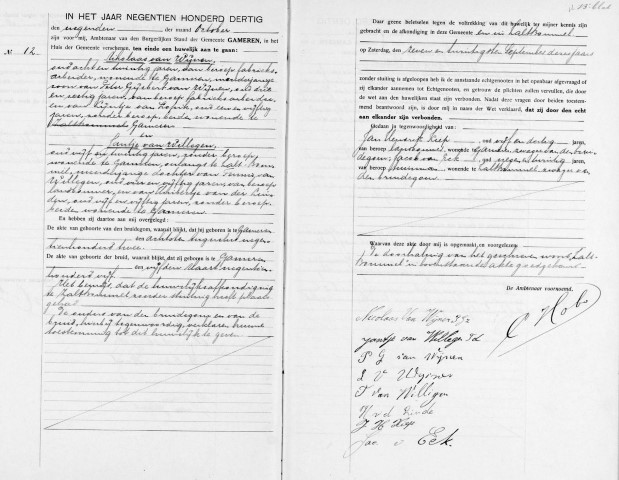 IN HET JAAR NEGENTIEN HONDERD DERTIG
den negenden der maand October
zijn voor mij, Ambtenaar van den Burgerlijken Stand der Gemeente GAMEREN, in het
Huis der Gemeente verschenen, ten einde een huwelijk aan te gaan:
N. 12.
Nikolaas van Wijnen,
oud acht en twintig jaren, van beroep fabrieks-
arbeider, wonende te Gameren, meerderjarige
zoon van Peter Gijsbert van Wijnen, oud drie
en zestig jaren, van beroep fabrieksarbeider,
en van
jaren, zonder beroep, beiden wonende te
Zaltbommel Gameren
en
Jantje van Willegen,
oud vijf en twintig jaren, zonder beroep,
wonende te Gameren, onlangs te Zalt-
mel, meerderjarige dochter van Teunis van
Willegen, oud
landbouwer, en van
den, oud vijftig jaren, zonder beroep,
beiden wonende te Gameren.
En hebben zij daartoe aan mij overgelegd:
De akte van geboorte van den bruidegom, waaruit blijkt, dat hij geboren is te Gameren
den achtsten
tienhonderd twee.
De akte van geboorte der bruid, waaruit blijkt, dat zij geboren is te Gameren
den vijfden Maart negentien-
honderd vijf.
Het bewijs, dat de huwelijksafkondiging
te Zaltbommel zonder stuiting heeft plaats
gehad.
De ouders van den bruidegom en van de
bruid, hierbij tegenwoordig, verklaren hunne
toestemming tot dit huwelijk te geven.
Daar geene beletselen tegen de voltrekking van dit huwelijk ter mijner kennis zijn
gebracht en de afkondiging in deze Gemeente en in Zaltbommel
op Zaterdag, den zeven en twintigsten September dezes jaars
zonder stuiting is afgeloopen heb ik de aanstaande echtgenooten in het openbaar afgevraagd of
zij elkander aannemen tot Echtgenooten, en getrouw de plichten zullen vervullen, die door
de wet aan den huwelijken staat zijn verbonden. Nadat deze vragen door beiden toestem-
mend beantwoord zijn, is door mij in naam der Wet verklaard, dat zij door den echt
aan elkander zijn verbonden.
Gedaan in tegenwoordigheid van:
Jan Hendrik oud vijf en dertig jaren,
van beroep landbouwer, wonende te Gameren, zwager van den brui-
degom; Jacob van Eck, oud negen en twintig jaren,
van beroep wonende te Zaltbommel, zwager van
den bruidegom.
Waarvan deze akte door mij is opgemaakt, en voorgelezen.
De doorhaling van het geschreven woord Zalt-
bommel in bovenstaande akte goedgekeurd.
De Ambtenaar voornoemd,
Nicolaas van Wijnen
Jantje van Willegen
P G van Wijnen
T van Willigen
J. H.
Jac v Eck.